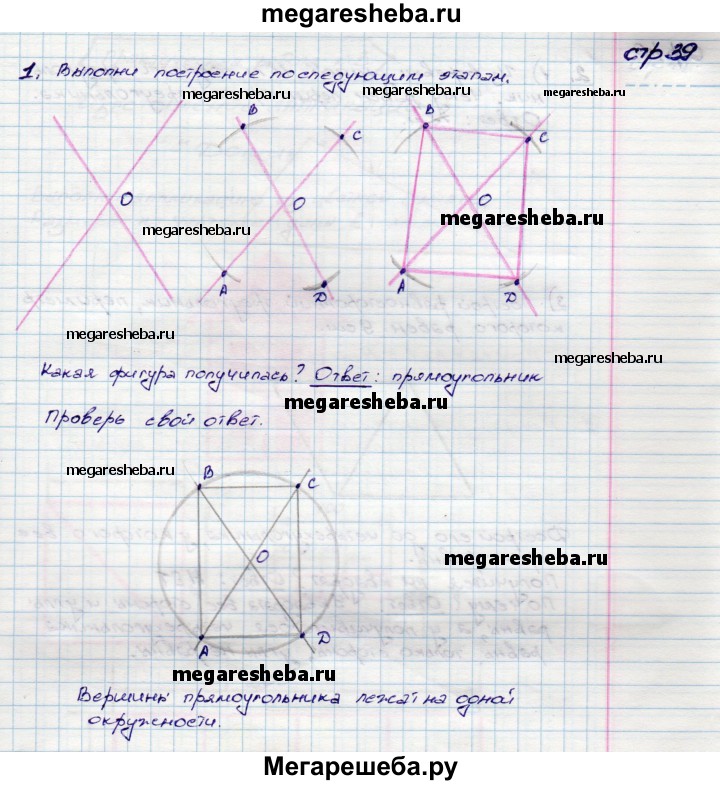 megaresheba.ru
стр.39
1. Выполни построение последующим этапам.
megaresheba.ru
megaresheba.ru
megaresheba.ru
B
C
O
A
D
B
C
O
A
D
O
megaresheba.ru
megaresheba.ru
megaresheba.ru
megaresheba.ru
Какая фигура получилась? Ответ: прямоугольник
megaresheba.ru
Проверь свой ответ.
megaresheba.ru
B
C
O
A
D
megaresheba.ru
megaresheba.ru
Вершины прямоугольника лежат на одной
окружности.
Мегарешеба.ру